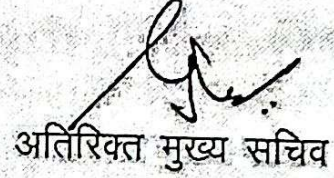 अतिरिक्त मुख्य सचिव